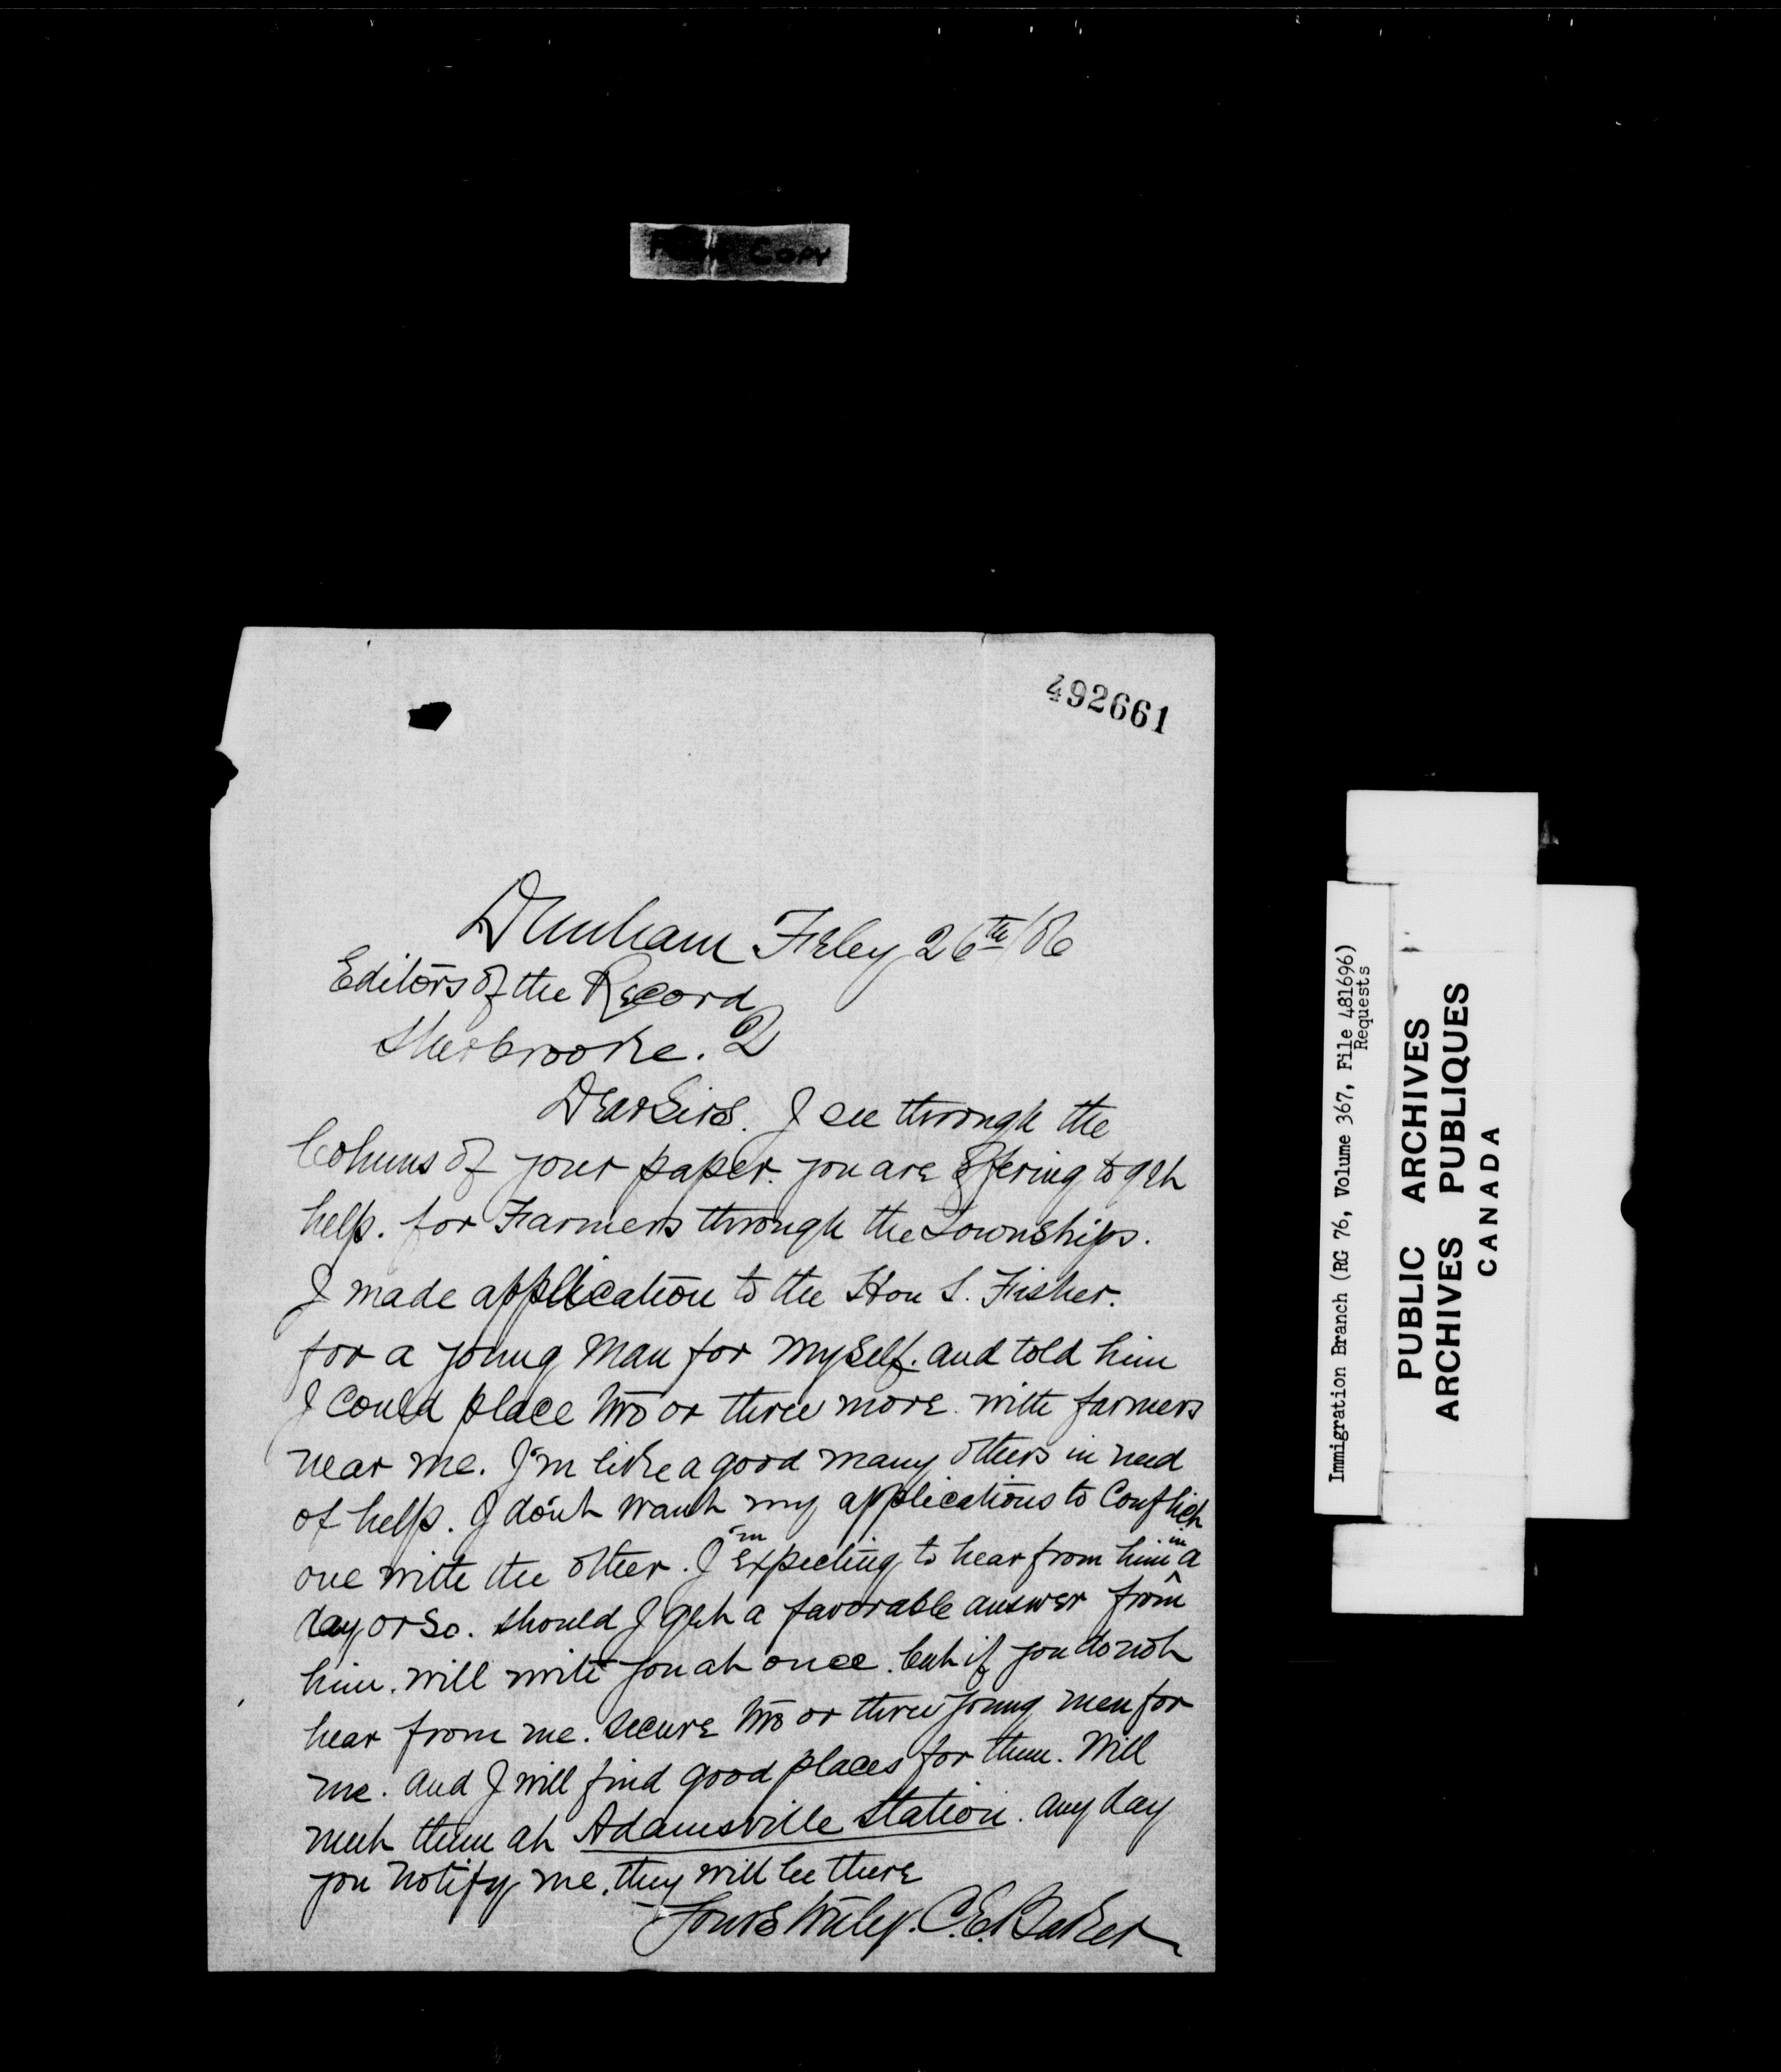 Copy
492661
Dunham Feby 26th/06
Editors of the Record
Sherbrooke. Q
Dear Sirs. I see through the
Columns of your paper. you are offering to get
help. for Farmers through the Townships.
I made application to the Hon S. Fisher.
for a young Man for myself. and told him
I could place two or three more with farmers
near me. I'm like a good many others in need
of help. I don't want my applications to Conflict
one with the other. I'm Expecting to hear from him in a
day or so. should I get a favorable answer from
him. will write you at once. but if you do not
hear from me. secure two or three young men for
me. and I will find good places for them. Will
meet them at Adamsville Station. any day
you notify me. they will be there
Yours truly. C.E. Baker
Immigration Branch (RG 76, Volume 367, File 481696)
Requests
PUBLIC ARCHIVES
ARCHIVES PUBLIQUES
CANADA